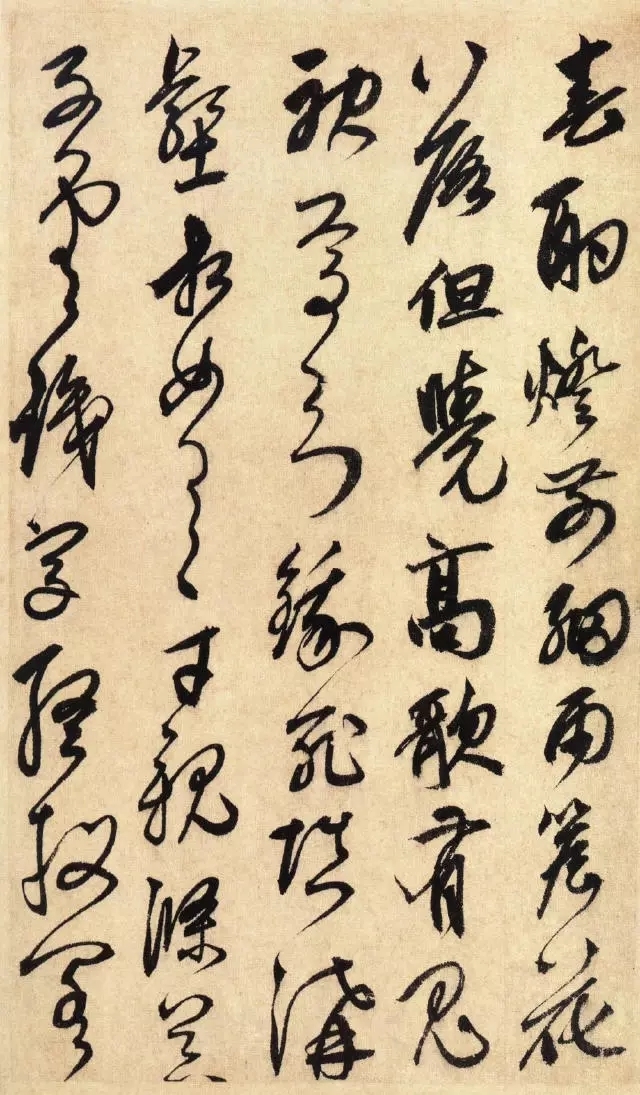 春酌燈前細雨簷花
落但曉高歌有鬼
神焉知餓死填溝
壑相如逸才親滌器
子雲識字終投閣